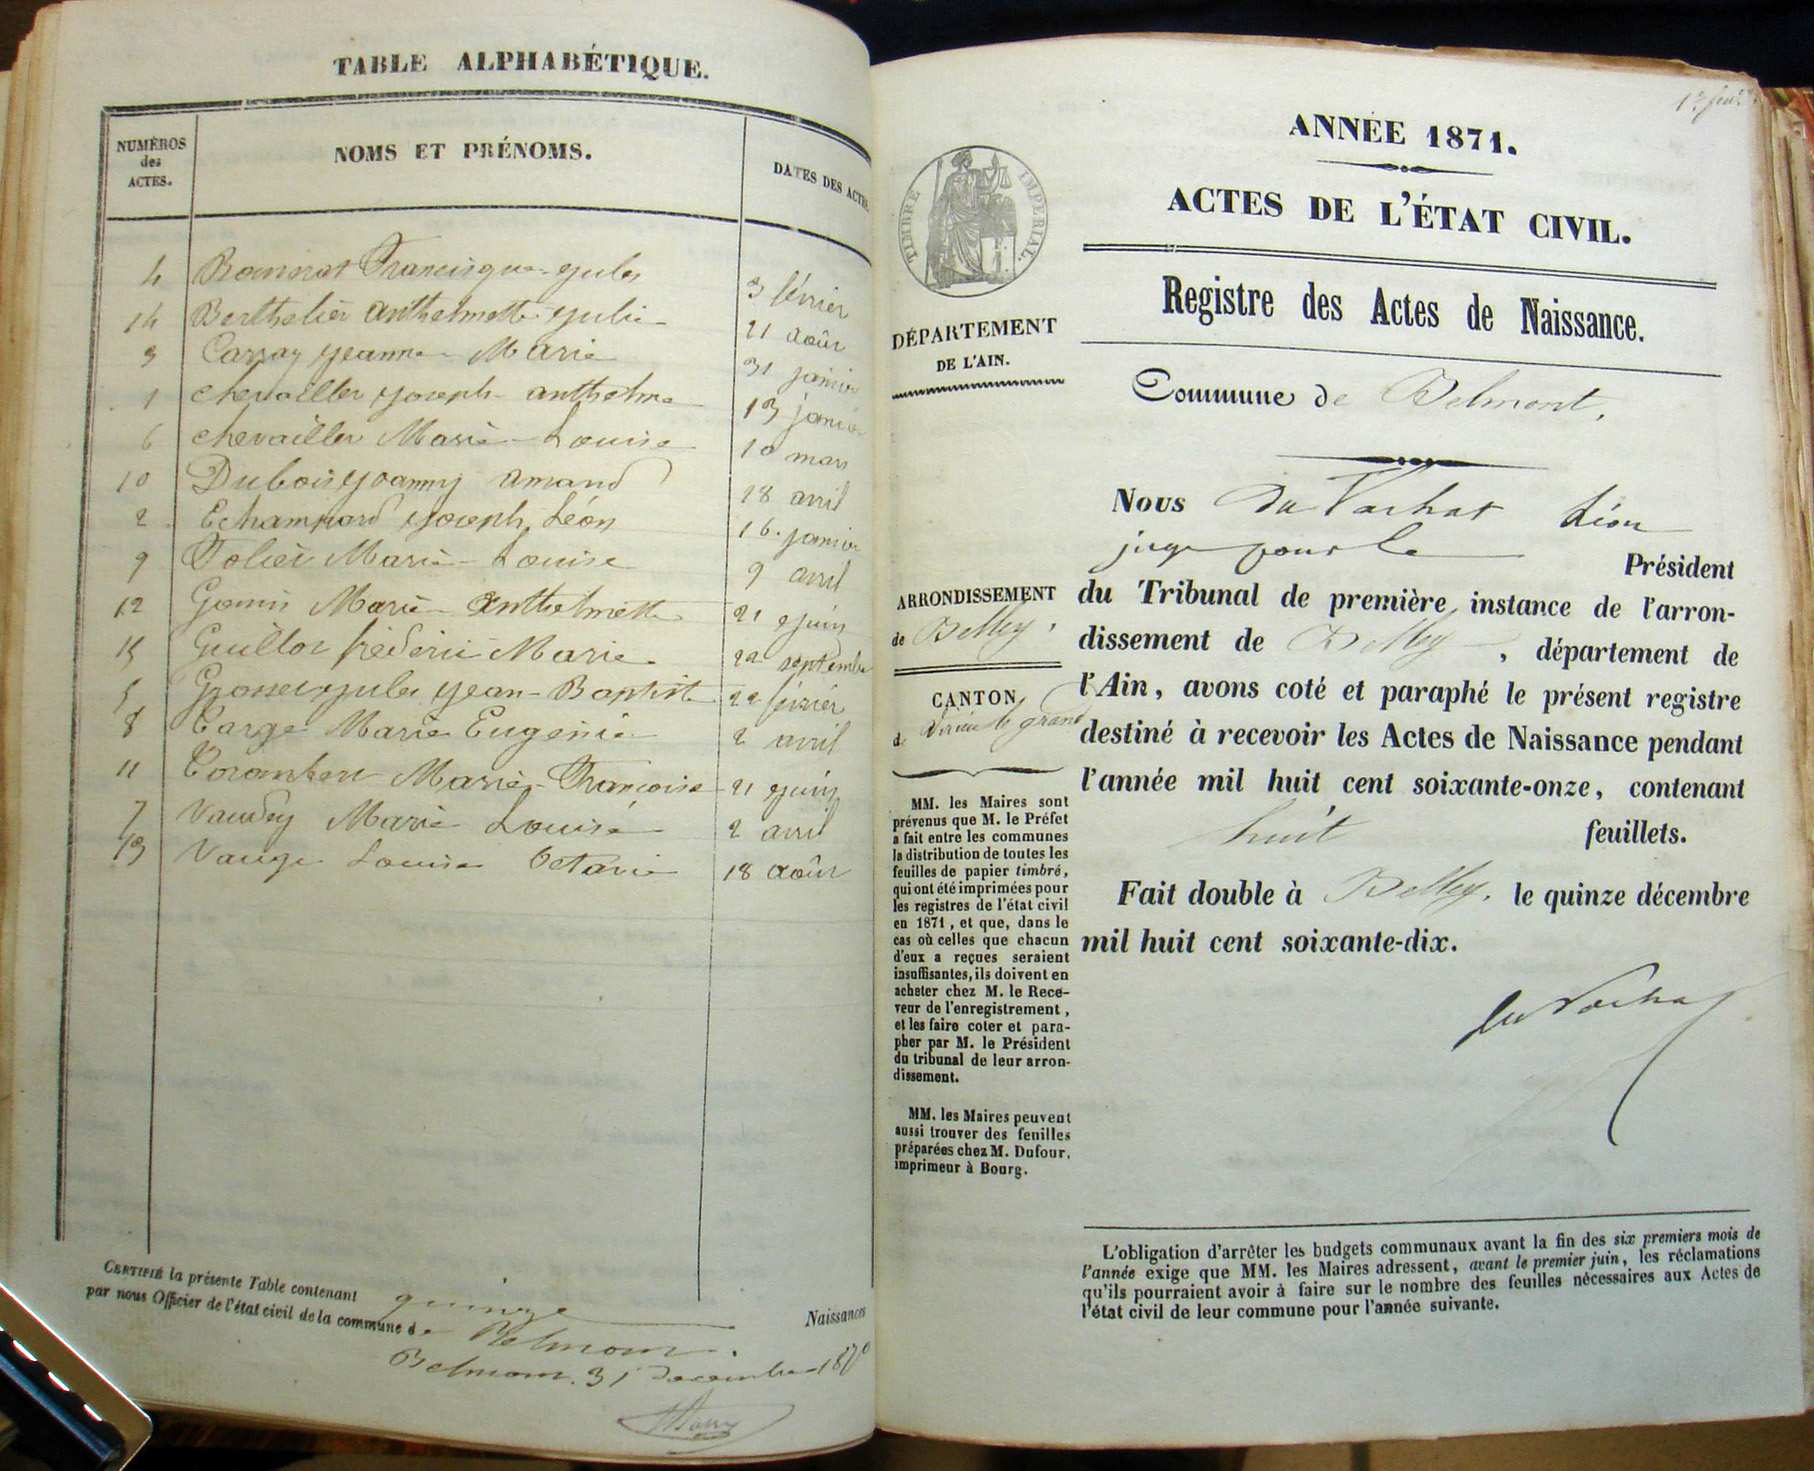 TABLE ALPHABÉTIQUE.
NUMÉROS des ACTES.
NOMS ET PRÉNOMS.
DATES DES ACTES
4 Bonnat Francisque Jules 3 février
14 Berthelier Anthelmette Julie 21 août
3 Jeanne Marie 31 janvier
1 chevailler Joseph anthelme 13 janvier
6 chevailler Marie Louise 10 mars
10 Dubois Joanny amand 18 avril
2 Echampard Joseph Léon 16 janvier
9 Marie Louise 9 avril
12 Marie Anthelmette 21 Juin
15 Guillot frédéric Marie 22 septembre
5 Jules Jean-Baptiste 22 février
8 Marie Eugénie 2 avril
11 Marie Françoise 21 Juin
7 Vaudey Marie Louise 2 avril
13 Vauge Louise Octavie 18 août
CERTIFIÉ la présente Table contenant quinze Naissances
par nous Officier de l'état civil de la commune de Belmont.
Belmont 31 Décembre 1870
1er feuil
ANNÉE 1871.
ACTES DE L'ÉTAT CIVIL.
TIMBRE IMPERIAL.
Registre des Actes de Naissance.
DÉPARTEMENT
DE L'AIN.
Commune de Belmont.
Nous Du Vachat Léon
juge pour le Président
ARRONDISSEMENT
de Belley.
CANTON
de Virieu le grand
du Tribunal de première instance de l'arron-
dissement de Belley, département de
l'Ain, avons coté et paraphé le présent registre
destiné à recevoir les Actes de Naissance pendant
l'année mil huit cent soixante-onze, contenant
huit feuillets.
Fait double à Belley, le quinze décembre
mil huit cent soixante-dix.
du Vachat
MM. les Maires sont
prévenus que M. le Préfet
a fait entre les communes
la distribution de toutes les
feuilles de papier timbré,
qui ont été imprimées pour
les registres de l'état civil
en 1871, et que, dans le
cas où celles que chacun
d'eux a reçues seraient
insuffisantes, ils doivent en
acheter chez M. le Rece-
veur de l'enregistrement,
et les faire coter et para-
pher par M. le Président
du tribunal de leur arron-
dissement.
MM. les Maires peuvent
aussi trouver des feuilles
préparées chez M. Dufour,
imprimeur à Bourg.
L'obligation d'arrêter les budgets communaux avant la fin des six premiers mois de
l'année exige que MM. les Maires adressent, avant le premier juin, les réclamations
qu'ils pourraient avoir à faire sur le nombre des feuilles nécessaires aux Actes de
l'état civil de leur commune pour l'année suivante.